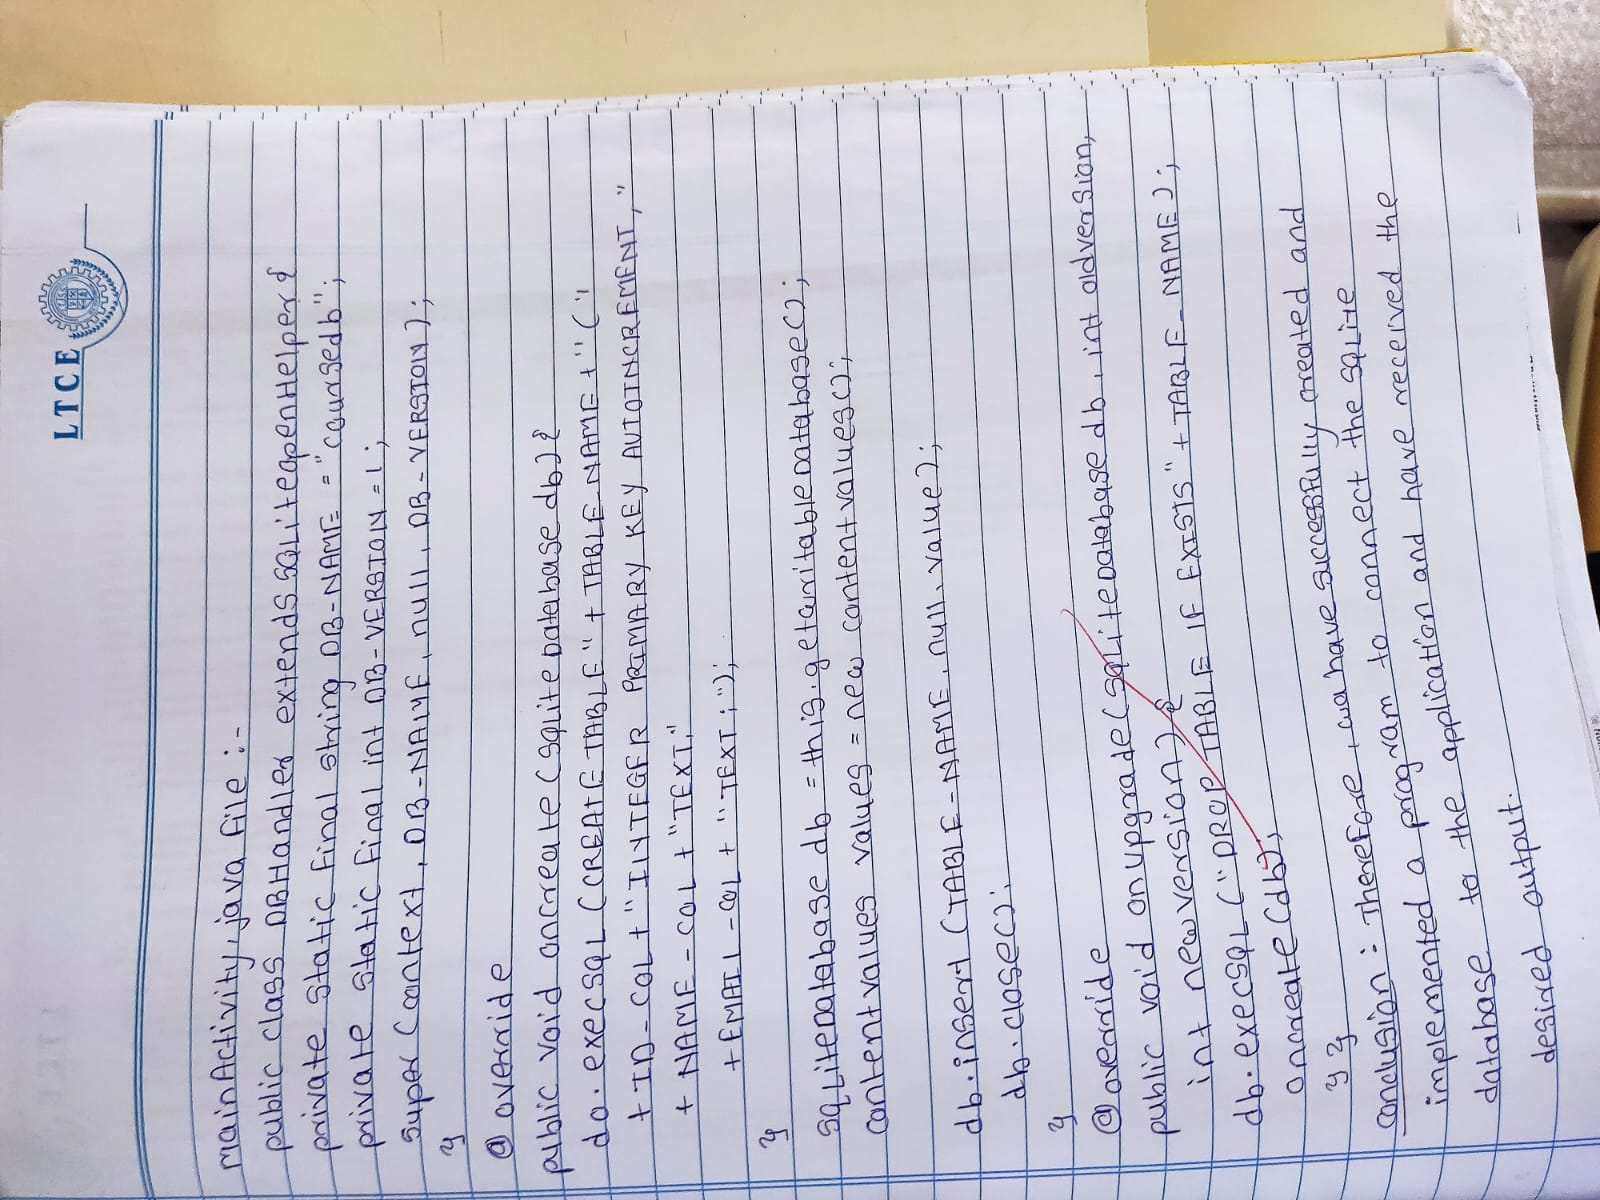 LTCE
mainActivity.java file :-
public class DBHandler extends SQLiteopenHelper {
private static final string DB-NAME = "coursedb";
private static final int DB-VERSION = 1 ;
super (context, DB-NAME, null, DB-VERSION);
}
@override
public void oncreate (sqliteDatabase db) {
do.execSQL (CREATE TABLE" + TABLE_NAME + "("
+ ID-COL + "INTEGER PRIMARY KEY AUTOINCREMENT,"
+ NAME-COL + "TEXT,"
+ EMAIL-COL + "TEXT;");
}
SQLiteDatabase db = this.getwritableDatabase();
contentvalues values = new contentvalues();
db.insert (TABLE-NAME, null, value);
db.close();
}
@override
public void onupgrade (SQLiteDatabase db, int oldversion,
int newversion) {
db.execSQL ("DROP TABLE IF EXISTS" + TABLE_NAME);
oncreate (db);
} }
conclusion : Therefore, we have successfully created and
implemented a program to connect the sqlite
database to the application and have received the
desired output.